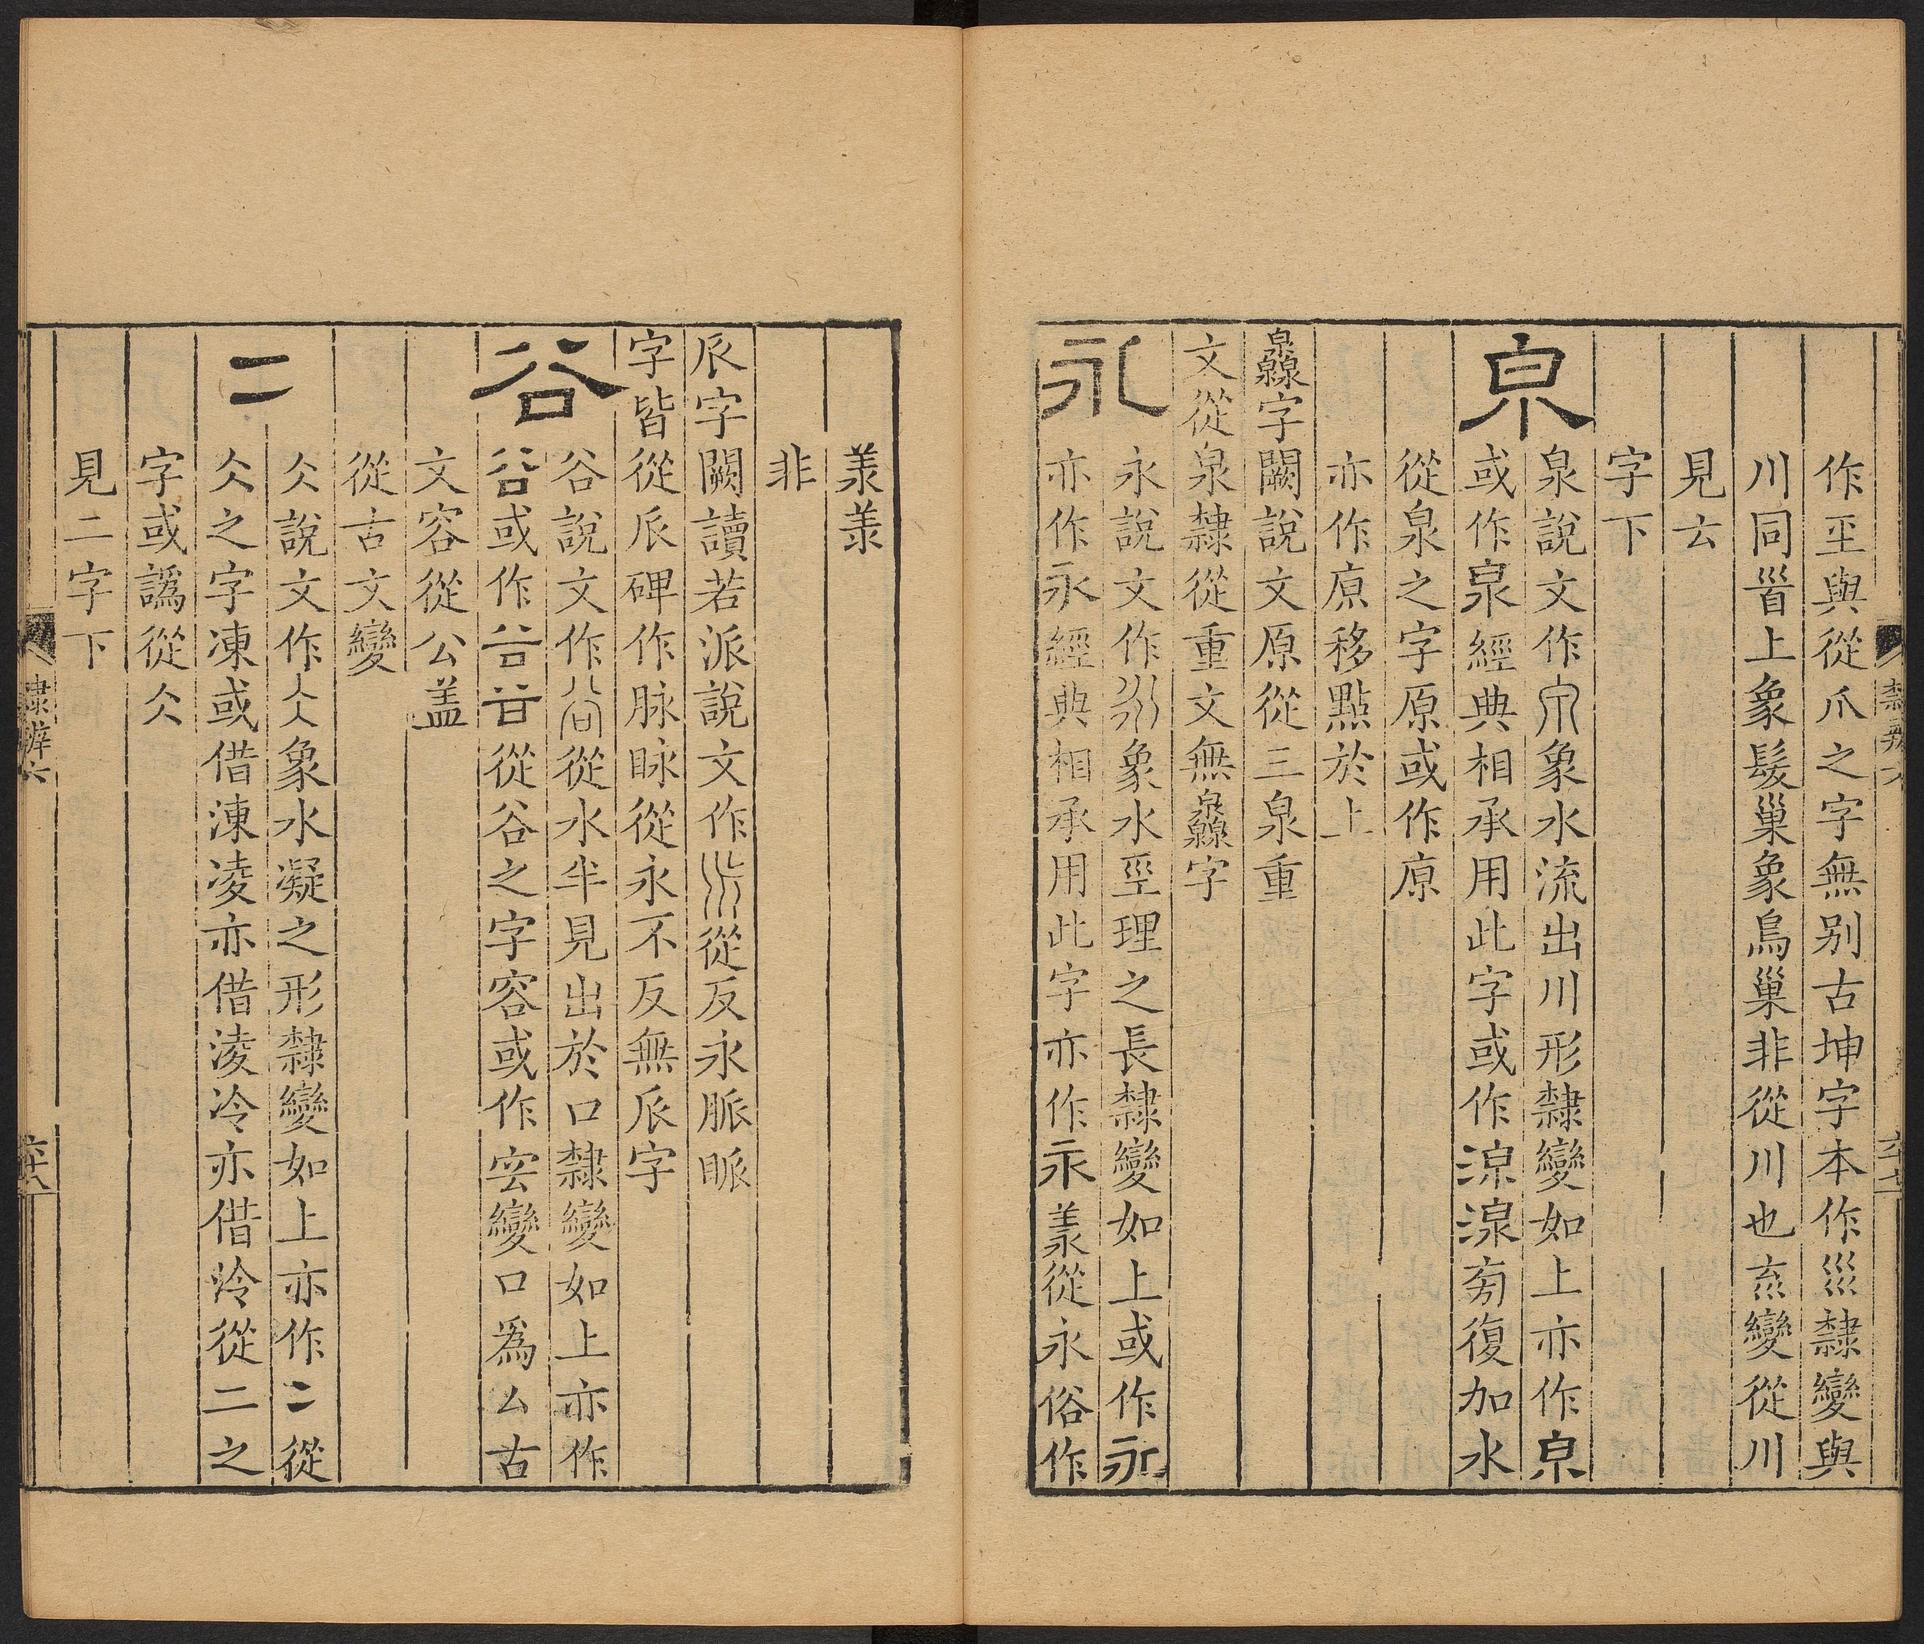 作坙與從爪之字無别古坤字本作巛隸變與
川同𡿺上象髮巢象鳥巢非從川也㐬變從川
見𠫓
字下
泉
泉說文作象水流出川形隸變如上亦作
或作泉經典相承用此字或作湶旁復加水
從泉之字原或作厡
亦作原移點於上
灥字闕說文原從三泉重
文從泉隸從重文無灥字
永
永說文作象水坙理之長隸變如上或作永
亦作永經典相承用此字亦作永羕從永俗作
羕羕
非
𠂢字闕讀若派說文作從反永脈眽
字皆從𠂢碑作脉眿從永不反無𠂢字
谷
谷說文作從水半見出於口隸變如上亦作
或作從谷之字容或作変口爲厶古
文容從公盖
從古文變
冫
仌說文作仌象水凝之形隸變如上亦作冫從
仌之字凍或借涷凌亦借淩冷亦借泠從二之
字或譌從仌
見二字下
隸辨六
六十七
隸辨六
六十八